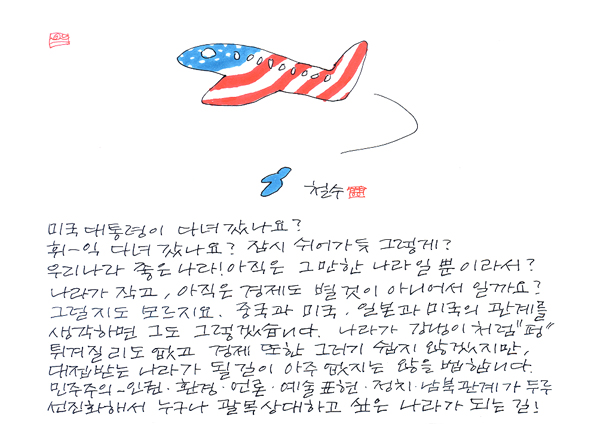 철수
미국 대통령이 다녀 갔나요?
휘-익 다녀 갔나요? 잠시 쉬어가듯 그렇게?
우리나라 좋은나라! 아직은 그만한 나라일 뿐이라서?
나라가 작고, 아직은 경제도 별것이 아니어서 일까요?
그럴지도 모르지요. 중국과 미국, 일본과 미국의 관계를
생각하면 그도 그렇겠습니다. 나라가 강냉이처럼 "펑"
튀겨질리도 없고 경제 또한 그러기 쉽지 않겠지만,
대접받는 나라가 될 길이 아주 없지는 않을 법합니다.
민주주의-인권·환경·언론·예술표현·정치·남북관계가 두루
선진화해서 누구나 괄목상대하고 싶은 나라가 되는 길!